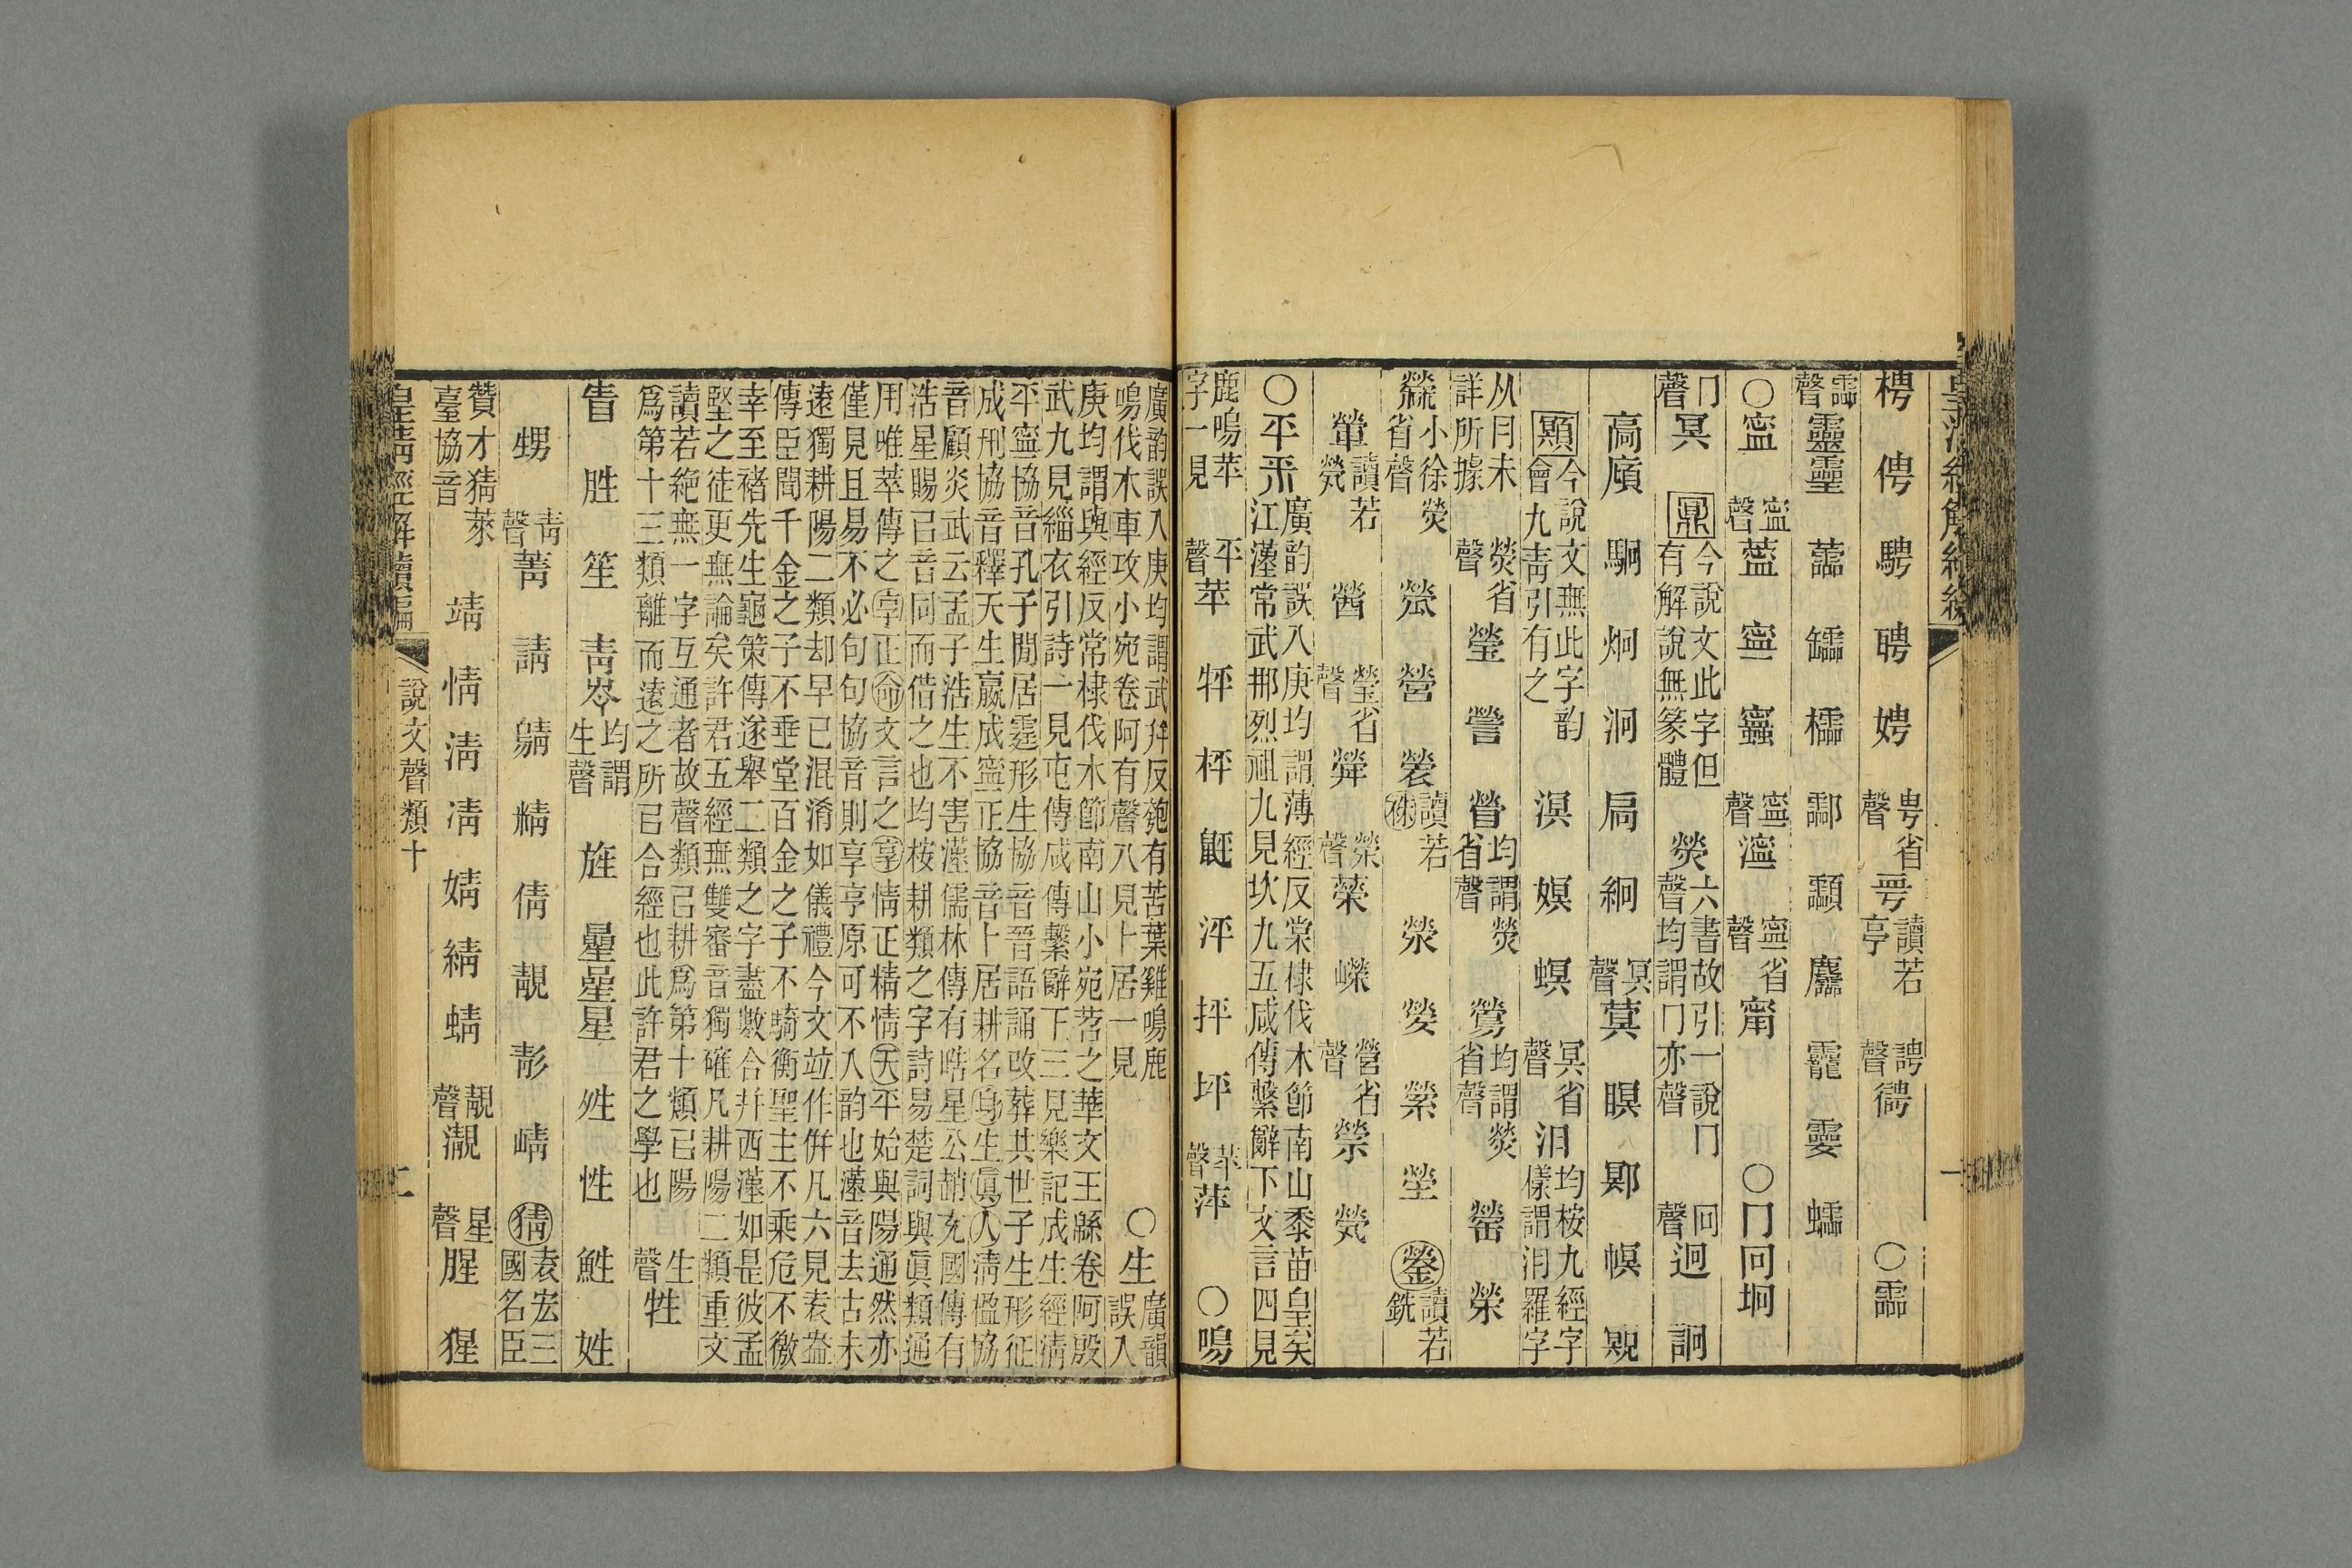 梬 俜 騁 聘 娉 甹省聲 甹 讀若亭 聘聲 𢔶 ○霝
霝聲 靈靈 蘦 䨩 櫺 酃 顬 麢 龗 孁 蠕
○寍 寍聲 薴 寧 蠠 寧聲 濘 寧省聲 甯 ○冂冋坰
冂聲 冥 鼏 今說文此字但有解說無篆體 熒 六書故引一說冂聲均謂冂亦聲 冋聲 迥 詗
高廎 駉 炯 泂 扃 絅 冥聲 蓂 瞑 鄍 幎 覭
顯 今說文無此字韵會九靑引有之 溟 嫇 螟 冥省聲 汨 均桉九經字樣謂汨羅字
从日未詳所據 熒省聲 瑩 謍 瞢 均謂熒省聲 鶯 均謂熒省聲 罃 榮
小徐熒省聲 煢 營 褮 讀若 滎 嫈 縈 塋 鎣 讀若銑
犖 讀若煢 醟 瑩省聲 榮聲 蠑 嶸 營省聲 禜 煢
○平 廣韵誤入庚均謂薄經反棠棣伐木節南山黍苗皇矣江漢常武那烈祖九見坎九五咸傳繫辭下文言四見
鹿鳴苹字一見 平聲 苹 牼 枰 䶄 泙 抨 坪 苹聲 萍 ○鳴
廣韵誤入庚均謂武幷反匏有苦葉雞鳴鹿鳴伐木車攻小宛卷阿有聲八見卜居一見 ○生 廣韻誤入
庚均謂與經反常棣伐木節南山小宛苕之華文王緜卷阿殷武九見緇衣引詩一見屯傳咸傳繫辭下三見樂記成生經淸
平寧協音孔子閒居霆形生協音晉語誦改葬共世子生形征成刑協音釋天生嬴成寧正協音卜居耕名身生眞人淸楹協
音顧炎武云孟子浩生不害漢儒林傳有晧星公趙充國傳有浩星賜已音同而借之也均桉耕類之字詩易楚詞與眞類通
用唯萃傳之享正命文言之享情正精情天平始與陽通然亦僅見且易不必句句協音則享亨原可不入韵也漢音去古未
遠獨耕陽二類却早已混淆如儀禮今文竝作併凡六見袁盎傳臣聞千金之子不垂堂百金之子不騎衡聖主不乘危不徼
幸至褚先生龜策傳遂舉二類之字盡數合幷西漢如是彼孟堅之徒更無論矣許君五經無雙審音獨確凡耕陽二類重文
讀若絶無一字互通者故聲類㠯耕爲第十類㠯陽爲第十三類離而遠之所㠯合經也此許君之學也 生聲 牲
眚 胜 笙 靑岑 均謂生聲 旌 曐曐星 甡 性 鮏 姓
甥 靑聲 菁 請 鶄 精 倩 靚 彰 崝 猜 袁宏三國名臣
贊才猜萊臺協音 靖 情 淸 凊 婧 綪 蜻 靚聲 瀞 星聲 腥 猩
皇淸經解續編 說文聲類十 二